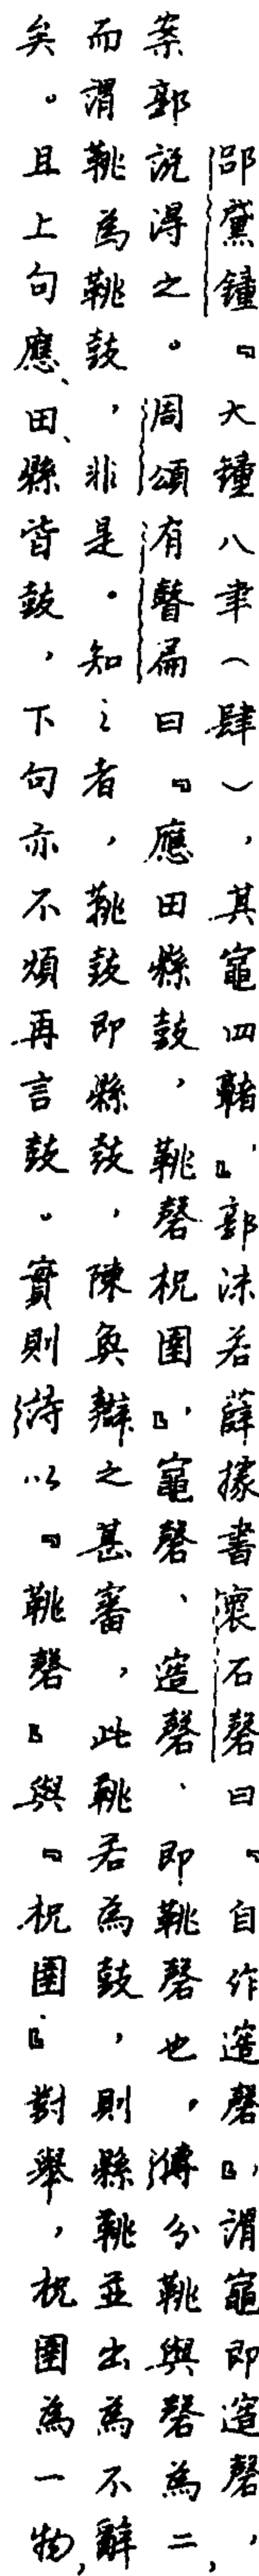 郘黛鐘『大鐘八聿（肆），其竈四䪜』，郭沫若薛據書懷石磬曰『自作簉磬』，謂竈即簉磬，
案郭說得之。周頌有瞽篇曰『應田縣鼓，鞉磬柷圉』，竈磬、簉磬、即鞉磬也，傳分鞉與磬為二，
而謂鞉為鞉鼓，非是。知之者，鞉鼓即縣鼓，陳奐辯之甚審，此鞉若為鼓，則縣鞉並出為不辭
矣。且上句應、田、縣皆鼓，下句亦不煩再言鼓。實則詩以『鞉磬』與『柷圉』對舉，柷圉為一物，